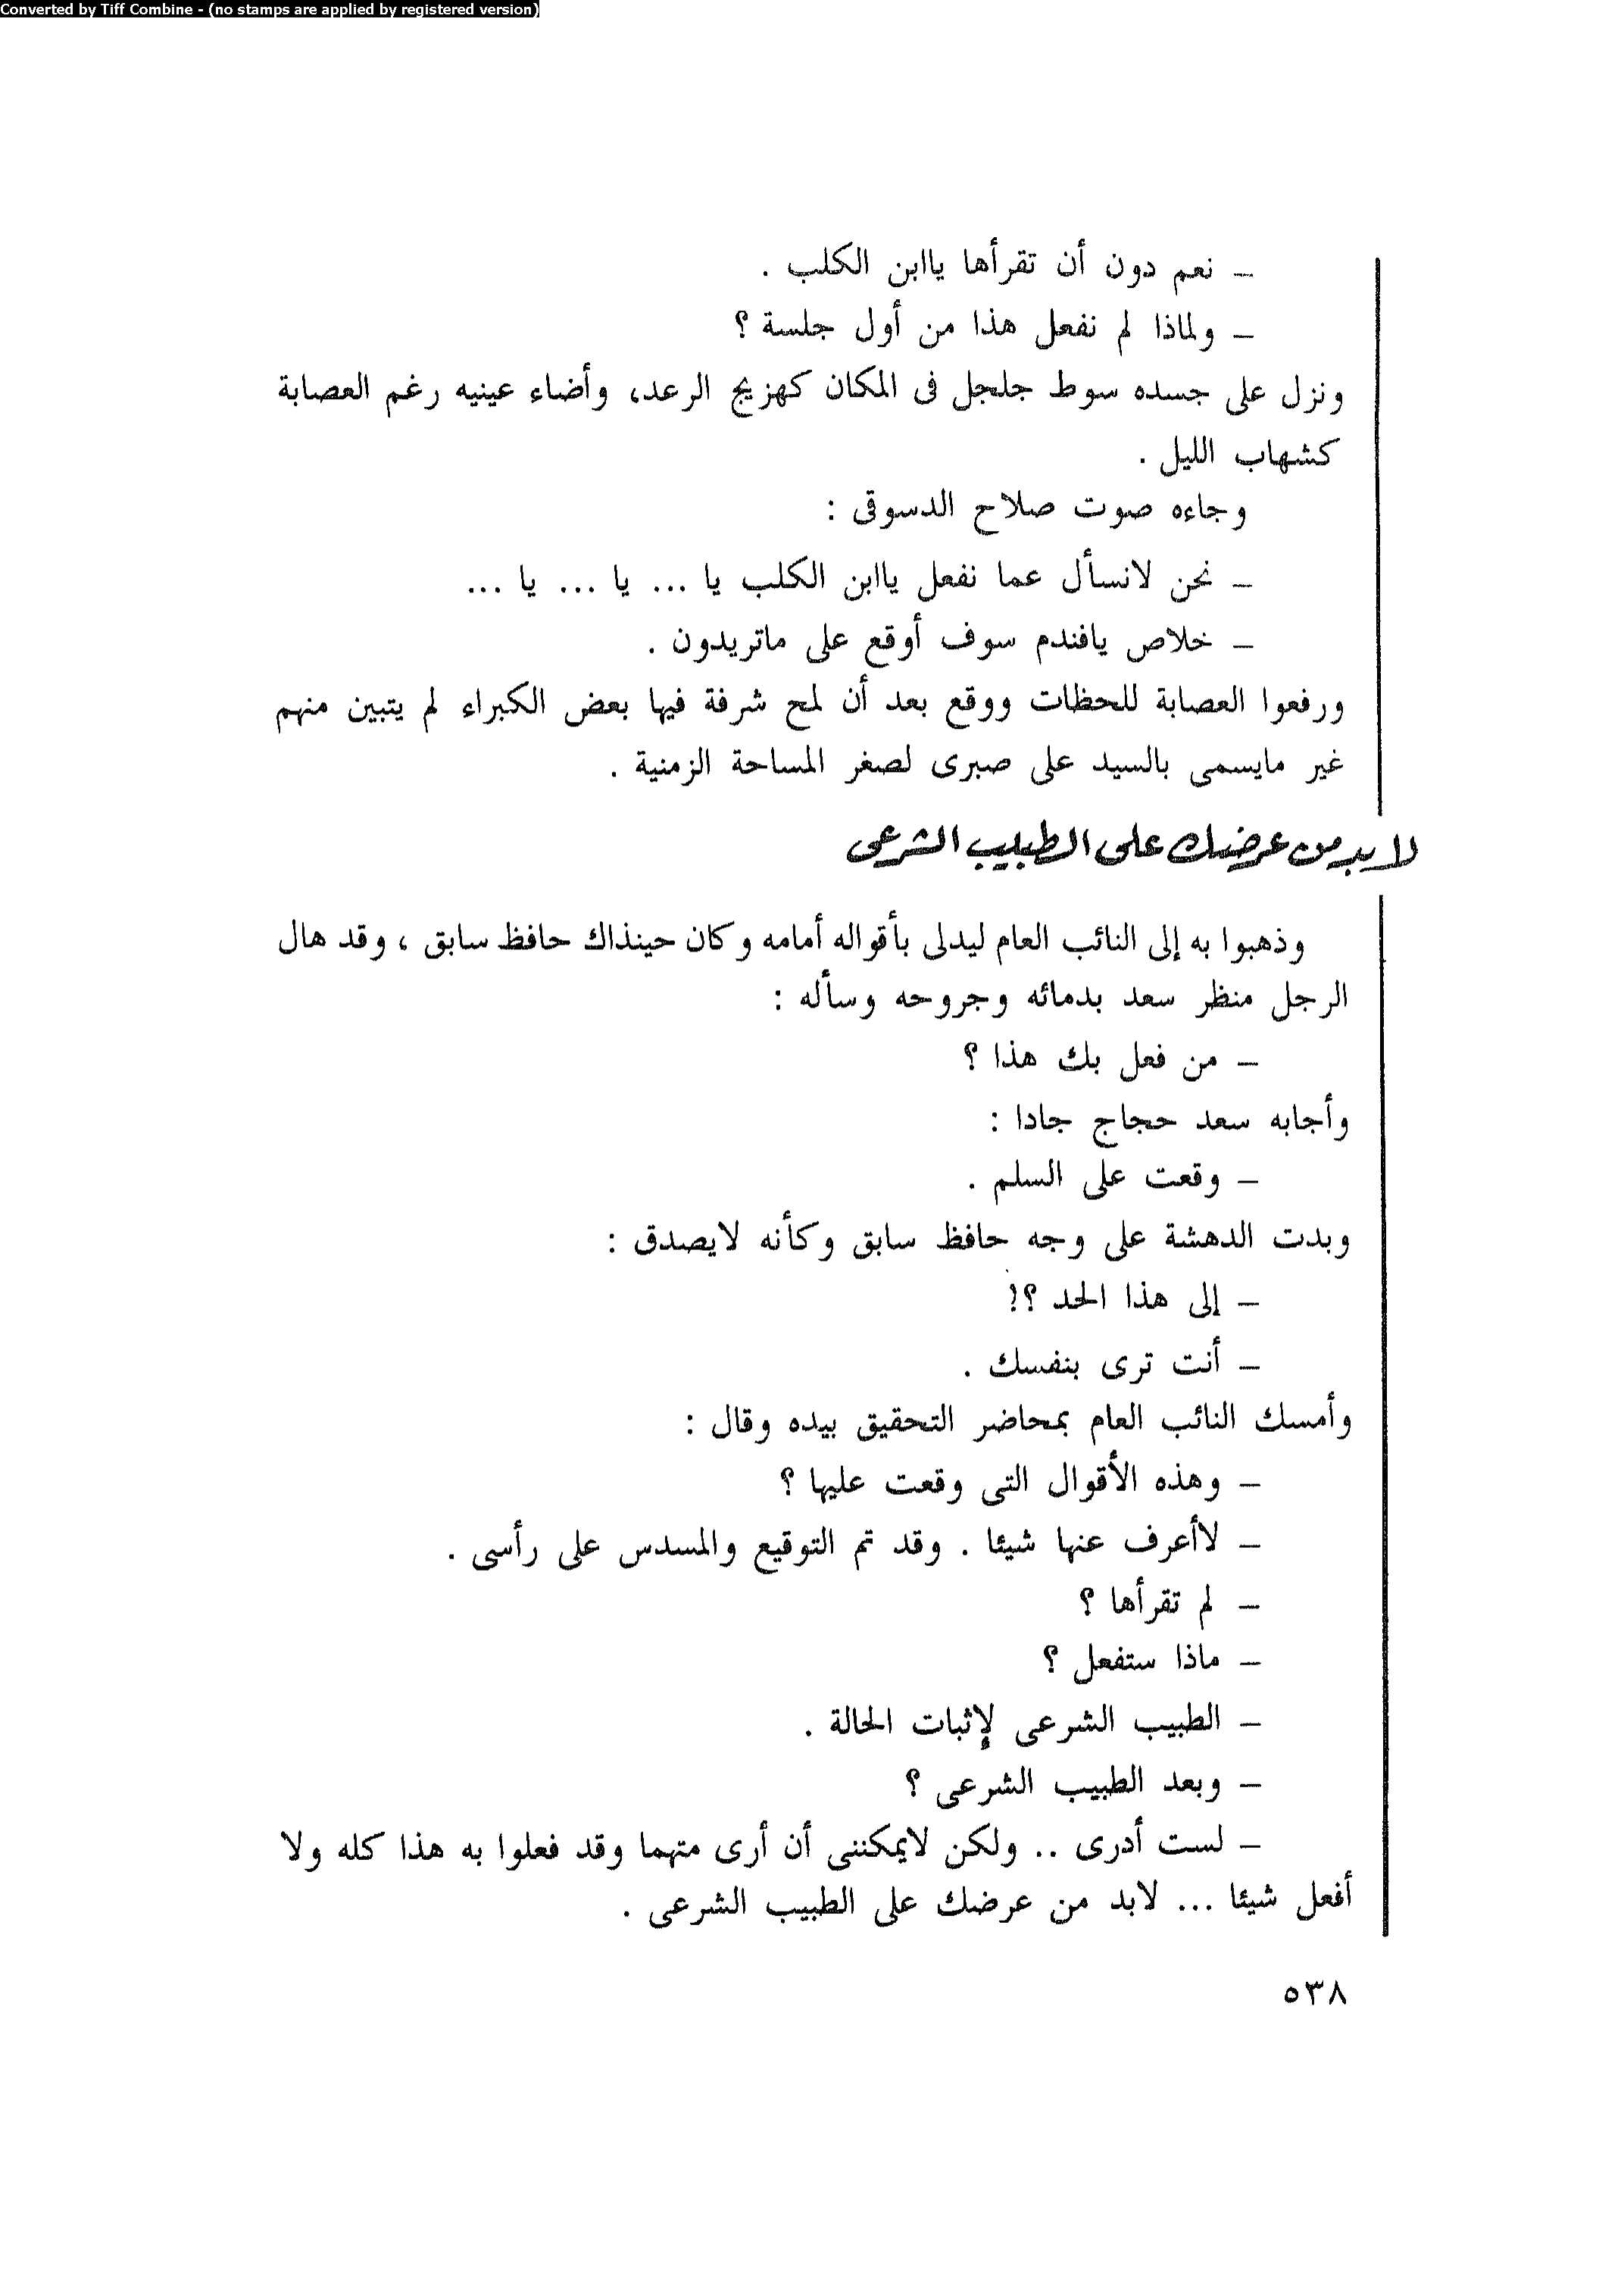 Converted by Tiff Combine - (no stamps are applied by registered version)
– نعم دون أن تقرأها ياابن الكلب .
– ولماذا لم نفعل هذا من أول جلسة ؟
ونزل على جسده سوط جلجل فى المكان كهزيج الرعد، وأضاء عينيه رغم العصابة
كشهاب الليل .
وجاءه صوت صلاح الدسوقى :
– نحن لانسأل عما نفعل ياابن الكلب يا ... يا ... يا ...
– خلاص يافندم سوف أوقع على ماتريدون .
ورفعوا العصابة للحظات ووقع بعد أن لمح شرفة فيها بعض الكبراء لم يتبين منهم
غير مايسمى بالسيد على صبرى لصغر المساحة الزمنية .
لابد من عرضك على الطبيب الشرعى
وذهبوا به إلى النائب العام ليدلى بأقواله أمامه وكان حينذاك حافظ سابق ، وقد هال
الرجل منظر سعد بدمائه وجروحه وسأله :
– من فعل بك هذا ؟
وأجابه سعد حجاج جادا :
– وقعت على السلم .
وبدت الدهشة على وجه حافظ سابق وكأنه لايصدق :
– إلى هذا الحد ؟!
– أنت ترى بنفسك .
وأمسك النائب العام بمحاضر التحقيق بيده وقال :
– وهذه الأقوال التى وقعت عليها ؟
– لاأعرف عنها شيئا . وقد تم التوقيع والمسدس على رأسى .
– لم تقرأها ؟
– ماذا ستفعل ؟
– الطبيب الشرعى لإثبات الحالة .
– وبعد الطبيب الشرعى ؟
– لست أدرى .. ولكن لايمكننى أن أرى متهما وقد فعلوا به هذا كله ولا
أفعل شيئا ... لابد من عرضك على الطبيب الشرعى .
٥٣٨